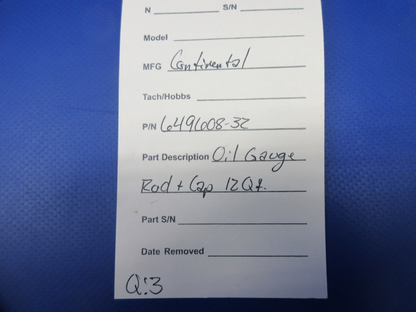 N ________ S/N ________
Model ________
MFG Continental
Tach/Hobbs ________
P/N 649608-32
Part Description Oil Gauge
Rod + Cap 12 Qt.
Part S/N ________
Date Removed ________
Q:3